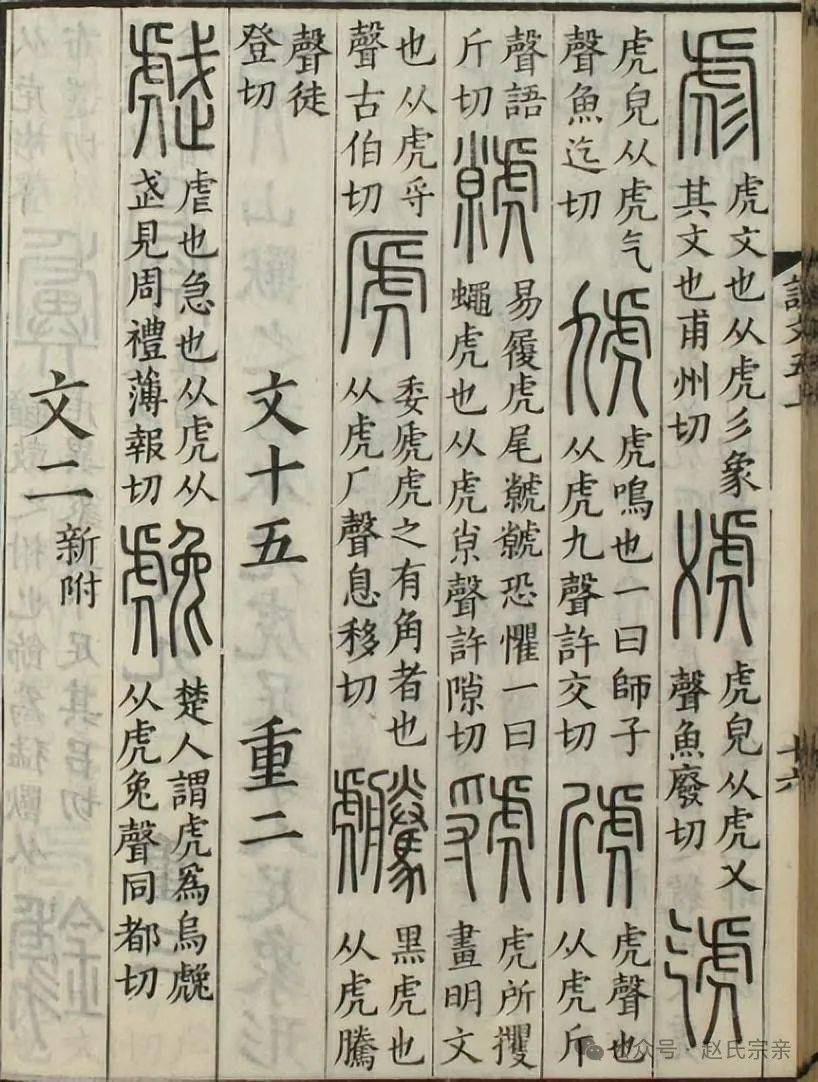 彪
虎文也从虎彡象
其文也甫州切
𧆛
虎皃从虎乂
聲魚廢切
虎皃从虎气
聲魚迄切
虓
虎鳴也一曰師子
从虎九聲許交切
虎聲也
从虎斤
聲語
斤切
虩
易履虎尾虩虩恐懼一曰
蠅虎也从虎𡭴聲許隙切
虢
虎所攫
畫明文
也从虎寽
聲古伯切
虒
委虒虎之有角者也
从虎厂聲息移切
黑虎也
从虎騰
聲徒
登切
文十五 重二
虣
虐也急也从虎从
武見周禮薄報切
䖘
楚人謂虎爲烏䖘
从虎兔聲同都切
文二 新附
說文五上
十六
公众号 · 赵氏宗亲